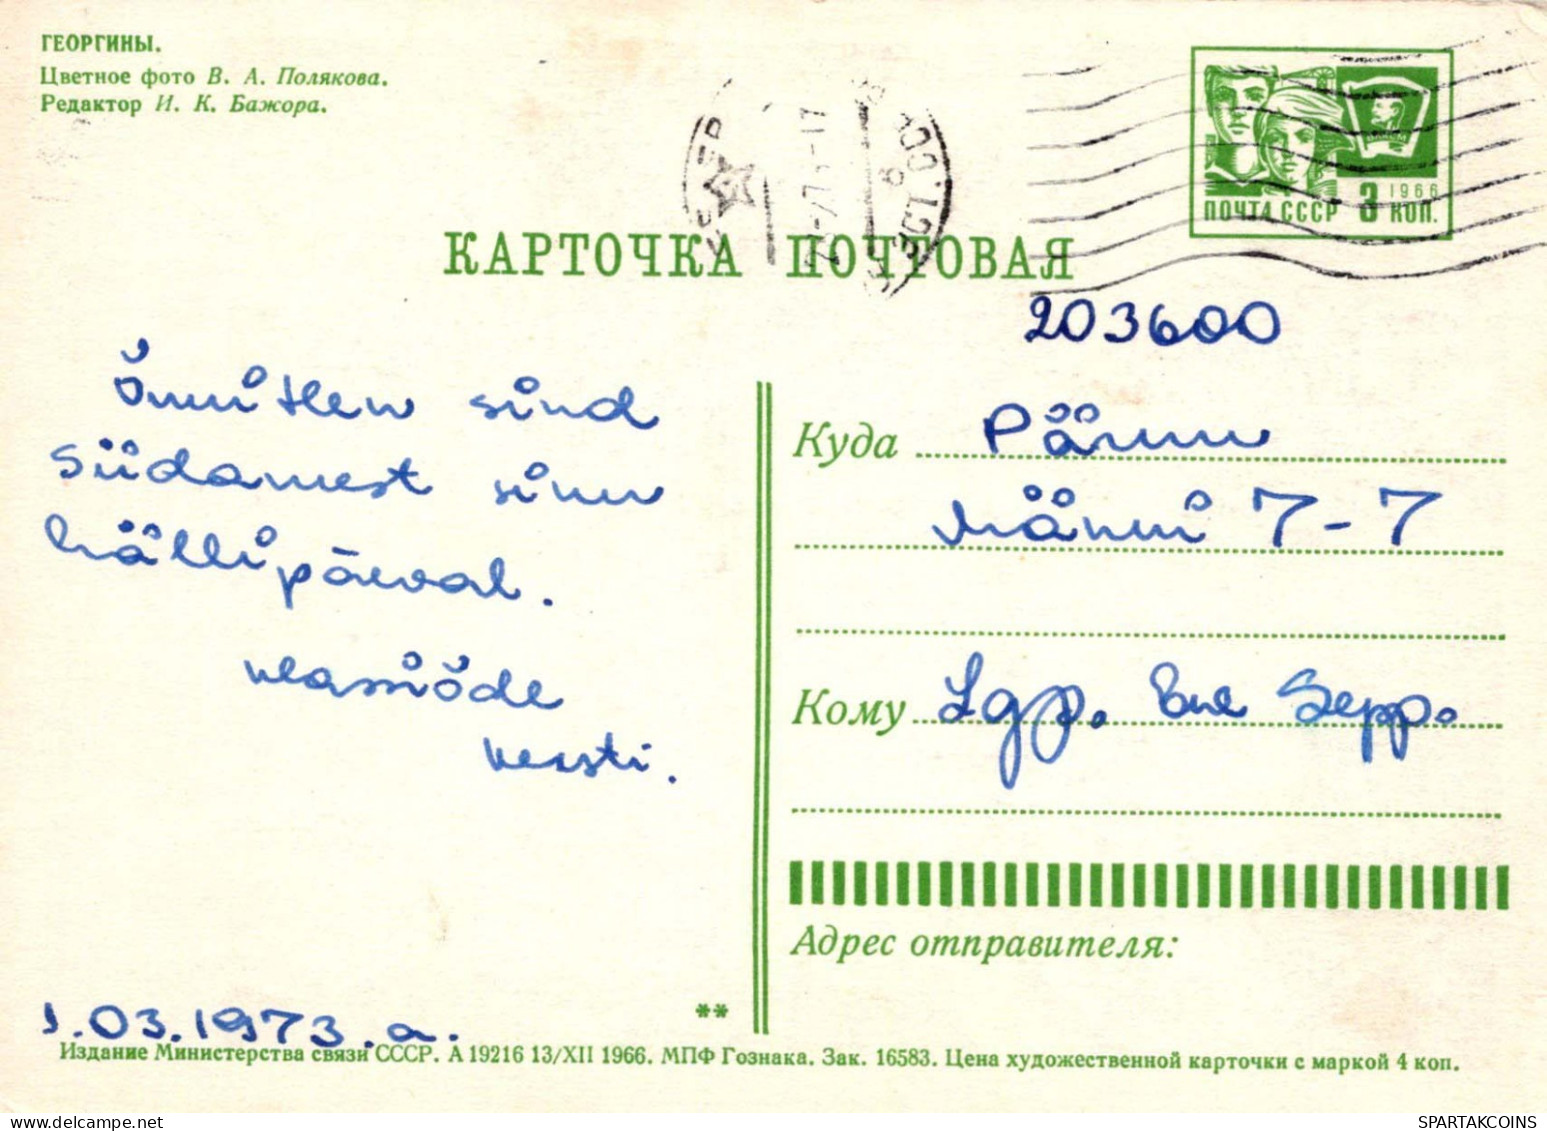 ГЕОРГИНЫ.
Цветное фото В. А. Полякова.
Редактор И. К. Бажора.
1966
ПОЧТА СССР 3 КОП.
КАРТОЧКА ПОЧТОВАЯ
203600
Õnnitlen sind
südamest sinu
hällipäeval.
klassiõde
Kersti.
1.03.1973.a.
Куда Pärnu
Männi 7-7
Кому Lgp. Eve Sepp.
Адрес отправителя:
**
Издание Министерства связи СССР. А 19216 13/XII 1966. МПФ Гознака. Зак. 16583. Цена художественной карточки с маркой 4 коп.
SPARTAKCOINS